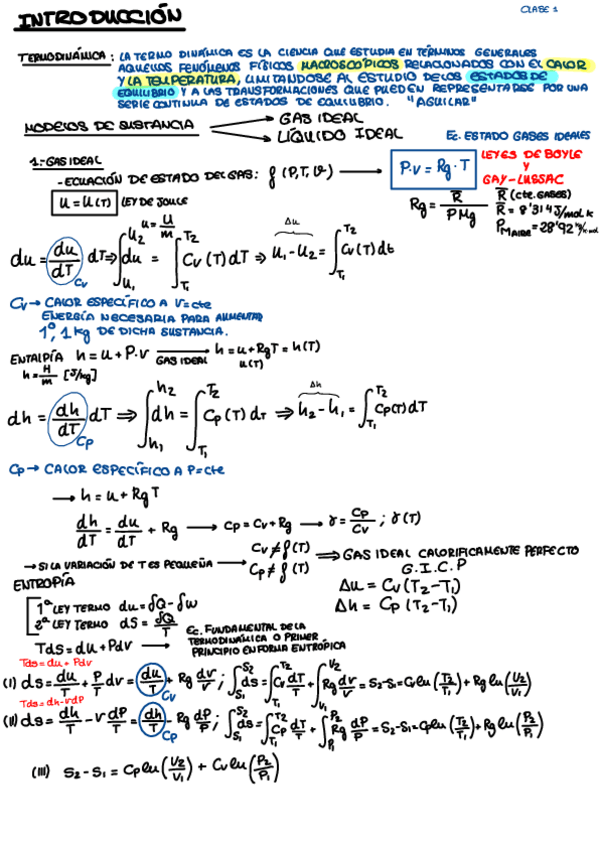 INTRODUCCIÓN
CLASE 1
TERMODINÁMICA: LA TERMO DINÁMICA ES LA CIENCIA QUE ESTUDIA EN TÉRMINOS GENERALES
AQUELLOS FENÓMENOS FÍSICOS MACROSCÓPICOS RELACIONADOS CON EL CALOR
Y LA TEMPERATURA, LIMITANDOSE AL ESTUDIO DE LOS ESTADOS DE
EQUILIBRIO Y A LAS TRANSFORMACIONES QUE PUEDEN REPRESENTARSE POR UNA
SERIE CONTINUA DE ESTADOS DE EQUILIBRIO. "AGUILAR"
MODELOS DE SUSTANCIA → GAS IDEAL
→ LÍQUIDO IDEAL
Ec. ESTADO GASES IDEALES
1.- GAS IDEAL
- ECUACIÓN DE ESTADO DEL GAS: f (P,T,v) → P·v = Rg·T
LEYES DE BOYLE
Y
GAY-LUSSAC
u = u(T) LEY DE JOULE
u = U/m
Rg = R̅/PMg
R̅ (cte. GASES)
R̅ = 8'314 J/mol K
PMAIRE = 28'92
du = (du/dT) dT ⇒ ∫u₁^u₂ du = ∫T₁^T₂ Cv(T) dT ⇒ u₁-u₂ = ∫T₁^T₂ Cv(T) dt
Cv
Δu
Cv → CALOR ESPECÍFICO A V=cte
ENERGÍA NECESARIA PARA AUMENTAR
1º, 1 kg DE DICHA SUSTANCIA.
ENTALPÍA h = u + P·v → GAS IDEAL h = u + RgT = h(T)
u(T)
h = H/m [J/kg]
dh = (dh/dT) dT ⇒ ∫h₁^h₂ dh = ∫T₁^T₂ Cp(T) dT ⇒ h₂-h₁ = ∫T₁^T₂ Cp(T) dT
Cp
Δh
Cp → CALOR ESPECÍFICO A P=cte
→ h = u + RgT
dh/dT = du/dT + Rg → Cp = Cv + Rg → γ = Cp/Cv ; γ(T)
→ SI LA VARIACIÓN DE T ES PEQUEÑA → Cv ≠ f(T)
Cp ≠ f(T)
⇒ GAS IDEAL CALORIFICAMENTE PERFECTO
G.I.C.P
Δu = Cv(T₂-T₁)
Δh = Cp(T₂-T₁)
ENTROPÍA
1ª LEY TERMO du = δQ - δw
2ª LEY TERMO dS = δQ/T
Tds = du + Pdv → Ec. FUNDAMENTAL DE LA
TERMODINÁMICA O PRIMER
PRINCIPIO EN FORMA ENTRÓPICA
Tds = du + Pdv
(I) ds = du/T + P/T dv = (du/T) + Rg dv/v ; ∫S₁^S₂ ds = ∫T₁^T₂ Cv dT/T + ∫V₁^V₂ Rg dv/v = S₂-S₁ = Cv ln(T₂/T₁) + Rg ln(V₂/V₁)
Cv
Tds = dh - vdP
(II) ds = dh/T - v dP/T = (dh/T) - Rg dP/P ; ∫S₁^S₂ ds = ∫T₁^T₂ Cp dT/T + ∫P₁^P₂ Rg dP/P = S₂-S₁ = Cp ln(T₂/T₁) + Rg ln(P₂/P₁)
Cp
(III) S₂-S₁ = Cp ln(V₂/V₁) + Cv ln(P₂/P₁)